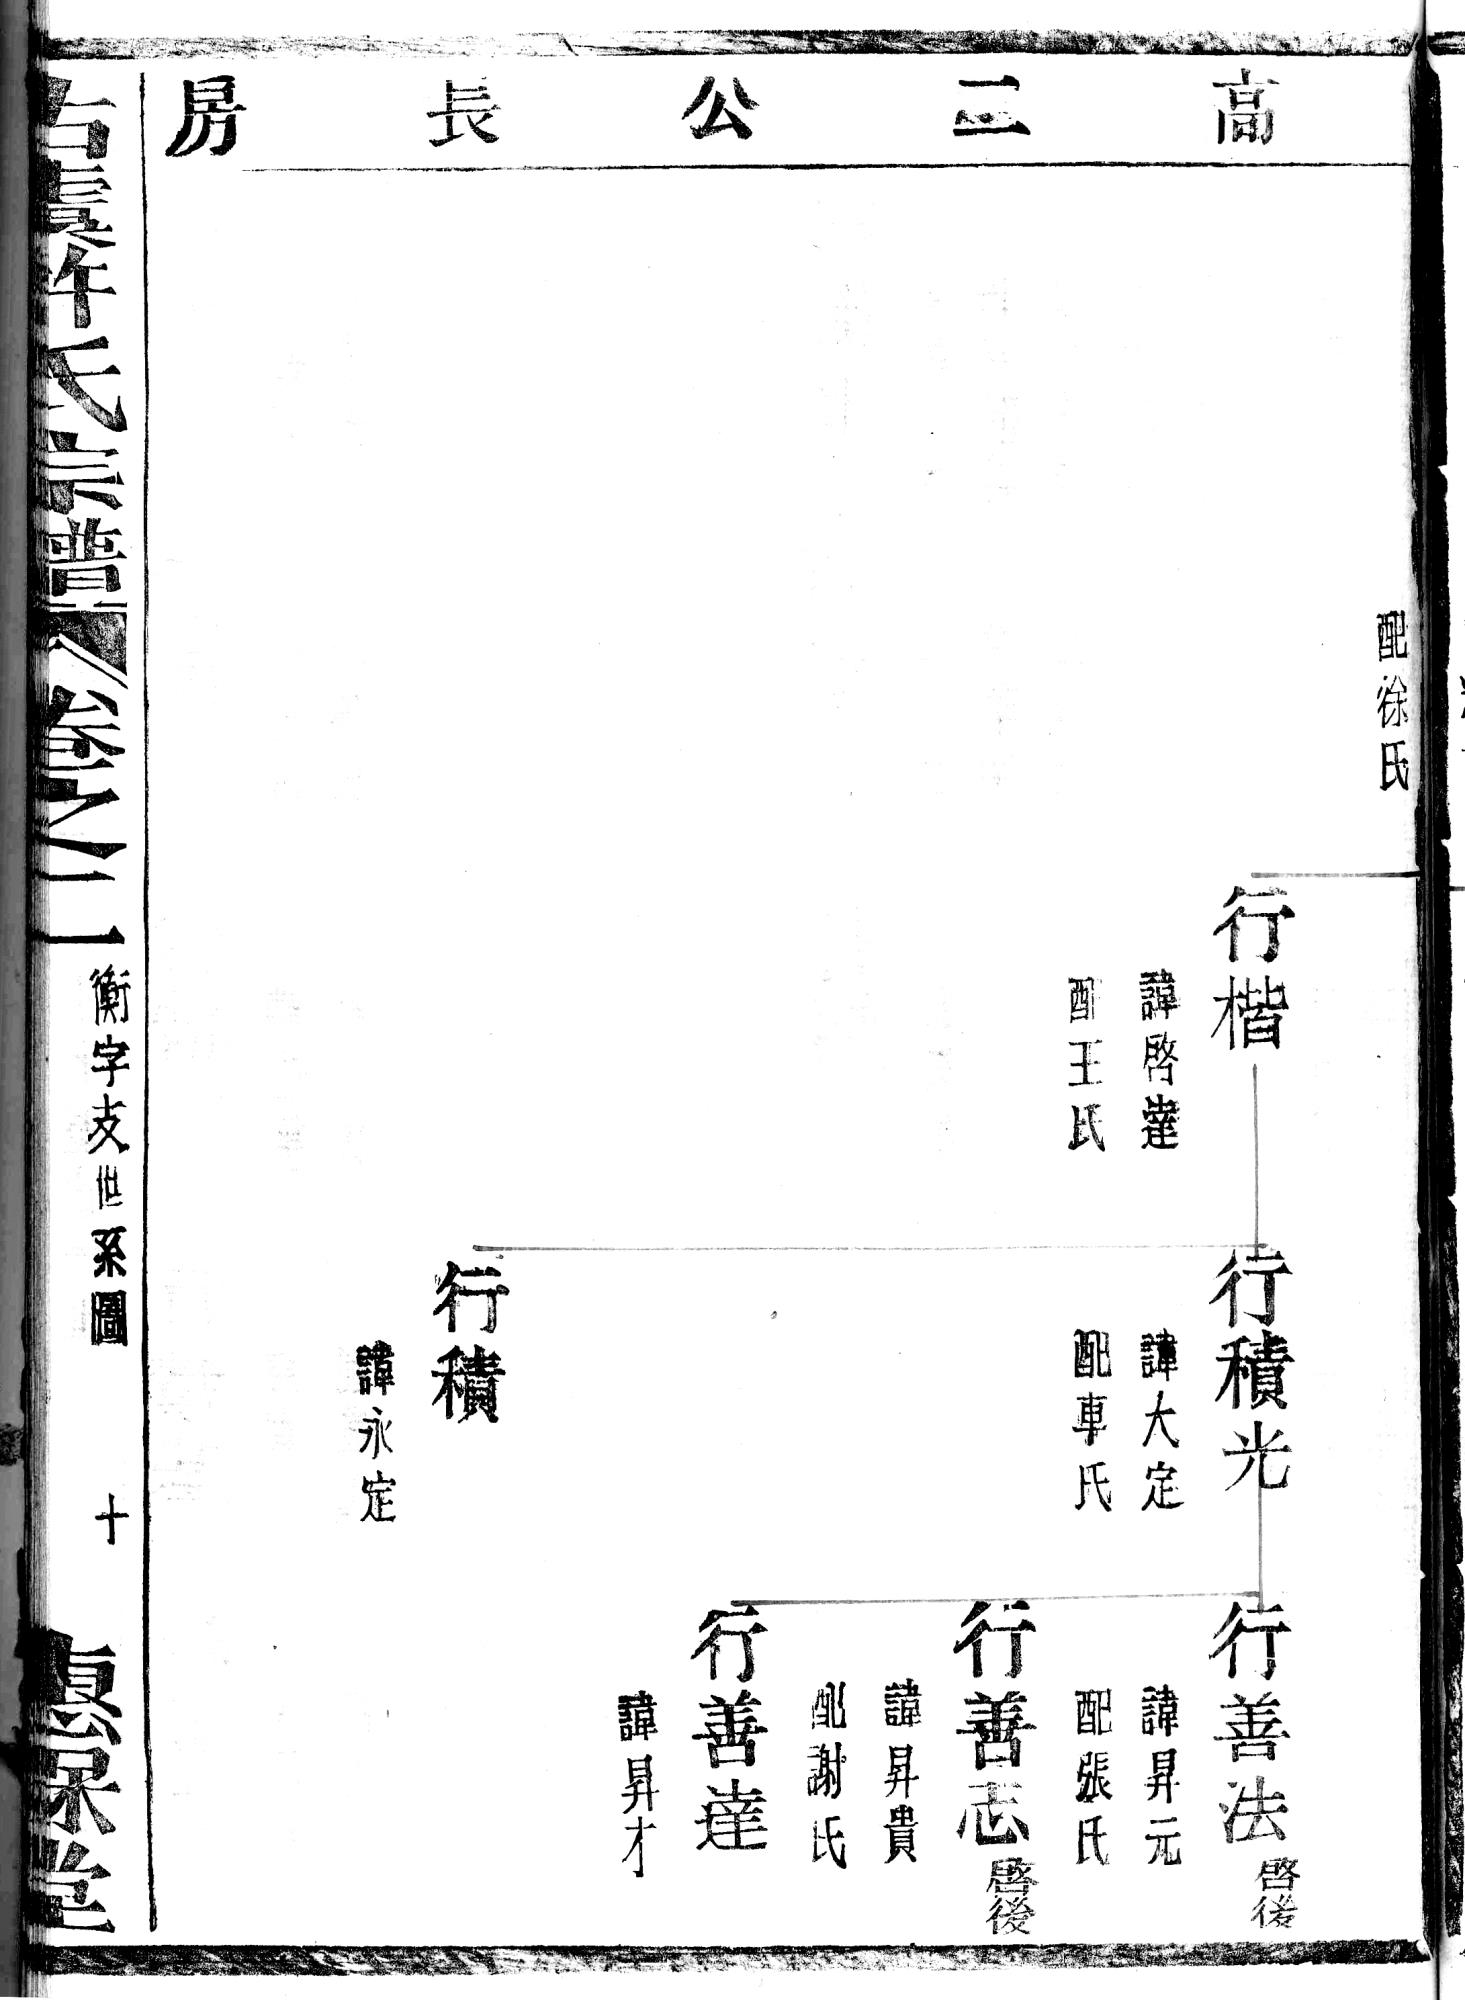 高三公長房
配徐氏
行楷
諱啓達
配王氏
行積光
諱大定
配車氏
行積
諱永定
行善法
啓後
諱昇元
配張氏
行善志
啓後
諱昇貴
配謝氏
行善達
諱昇才
古虞許氏宗譜
卷之二
衡字支世系圖
十
堂